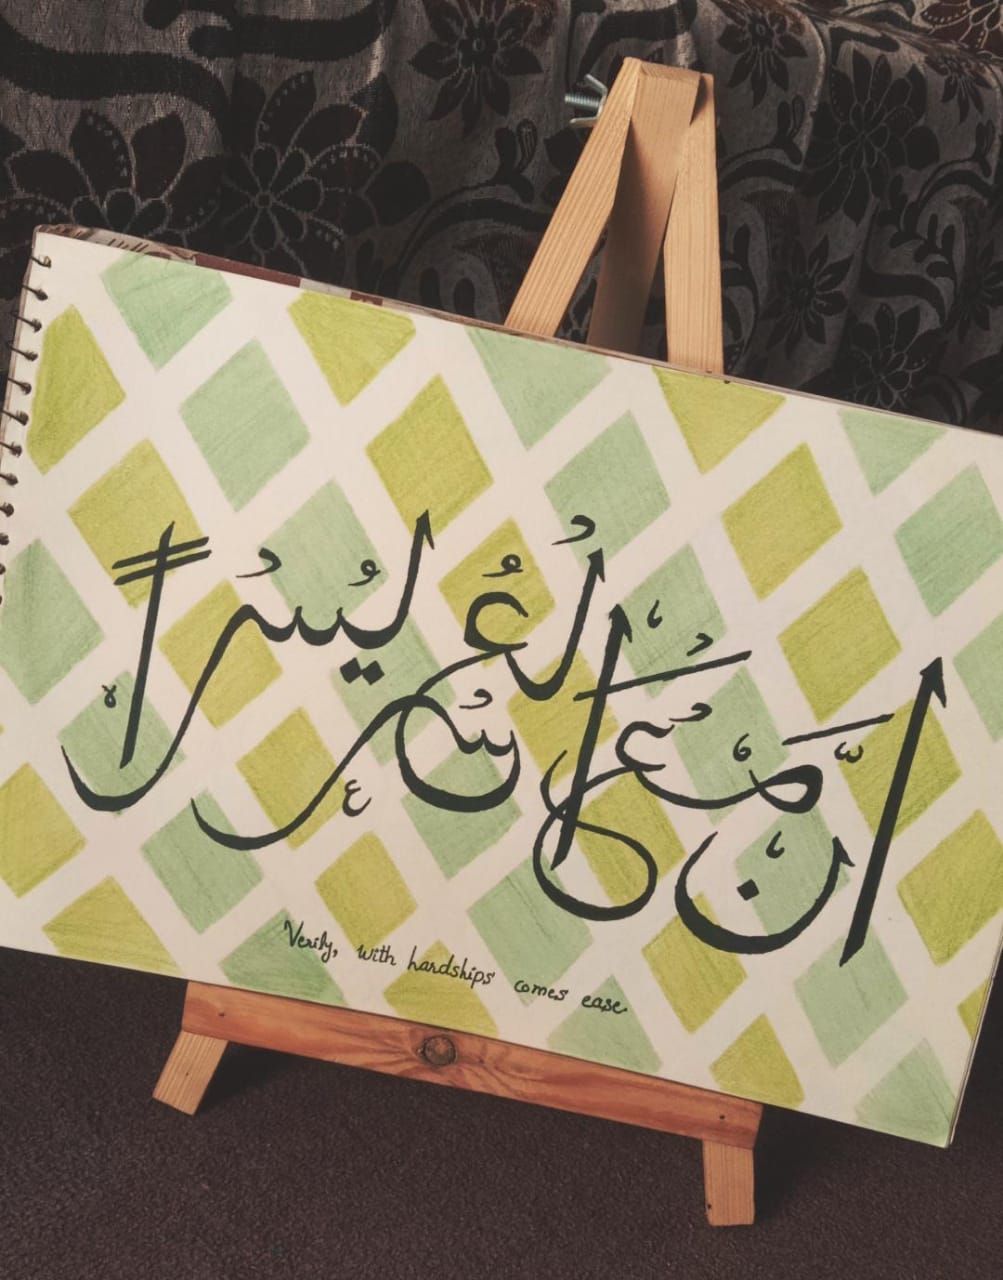 ان مع العسر يسرا
Verily, with hardships comes ease